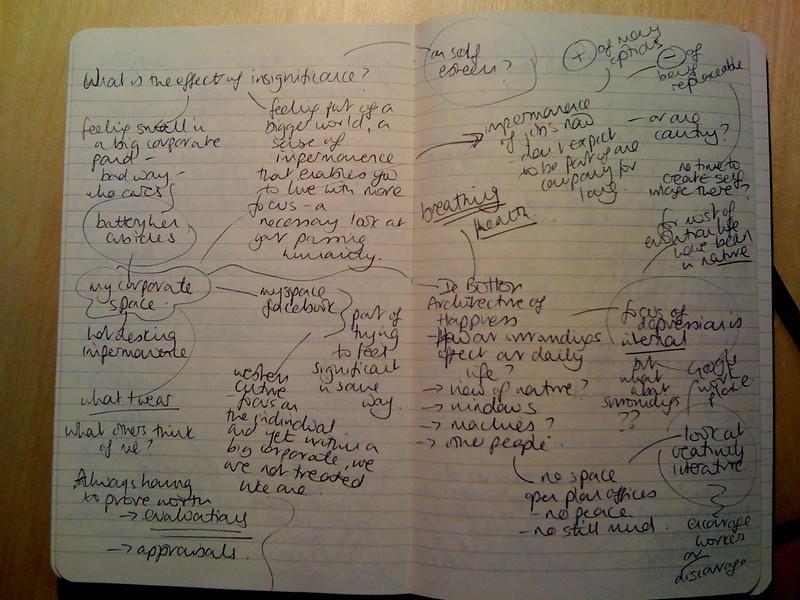 What is the effect of insignificance?
feeling small in
a big corporate
pond -
bad way -
who cares?
battery hen
cubicles
feeling part of a
bigger world, a
sense of
impermanence
that enables you
to live with more
focus - a
necessary look at
your passing
humanity.
my corporate
space.
hot desking
impermanence
what I wear
what others think
of me?
Always having
to prove worth
→ evaluations
→ appraisals.
myspace
facebook
part of
trying
to feel
significant
in some
way.
western
culture
- focus on
the individual
and yet within a
big corporate, we
are not treated
like one.
on self
esteem?
+ of many
options
- of
being
replaceable
impermanence
of jobs now
- don't expect
to be part of one
company for
long.
- or one
country?
no time to
create self
image there?
breathing
health.
for most of
evolution life
have been
in nature
- De Botton
Architecture of
Happiness
- How our surroundings
affect our daily
life?
→ view of nature?
→ windows
→ machines?
→ other people.
focus of
depression is
internal
but
what
about
surroundings
??
Google
work
place
look at
creativity
literature.
no space
open plan offices
- no peace
- no still mind.
encourage
workers
or
discourage